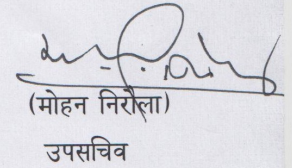 (मोहन निरौला)
उपसचिव